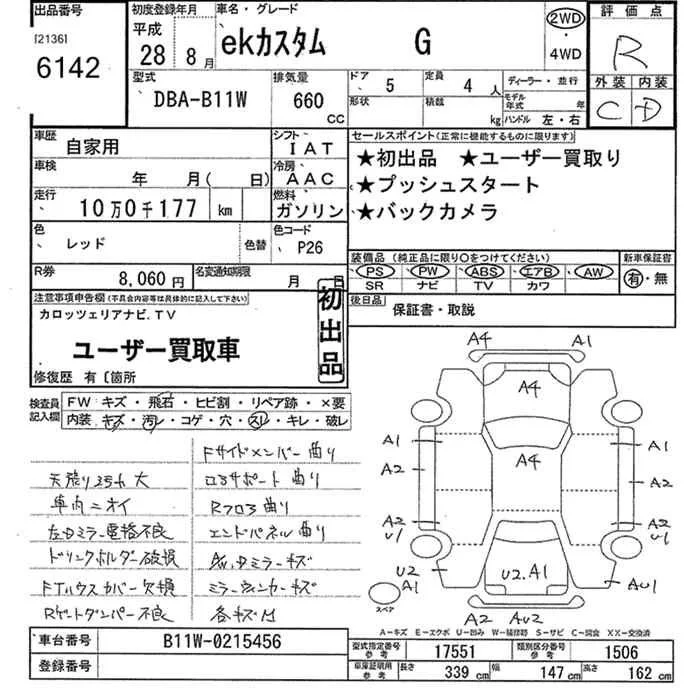 出品番号
[2136]
6142
初度登録年月
平成
28年 8月
車名・グレード
ekカスタム G
2WD
・
4WD
評価点
R
外装 内装
C D
型式
DBA-B11W
排気量
660
CC
ドア 5
定員 4 人
形状
積載 kg
ディーラー・並行
モデル年式 年
ハンドル 左・右
車歴 自家用
シフト IAT
車検 年 月( 日)
冷房 AAC
走行 10万0千177 km
燃料 ガソリン
色 レッド 色替
色コード P26
R券 8,060円
名変通知期限 月 日
セールスポイント(正常に機能するものに限ります)
★初出品 ★ユーザー買取り
★プッシュスタート
★バックカメラ
装備品(純正品に限り○をつけてください)
PS PW ABS エアB AW
SR ナビ TV カワ
新車保証書
有・無
後日品 保証書・取説
注意事項申告欄(不具合内容等は具体的に記入して下さい)
カロッツェリアナビ.TV
ユーザー買取車
初出品
修復歴 有〔箇所
検査員記入欄
FW キズ・飛石・ヒビ割・リペア跡・×要
内装 キズ・汚レ・コゲ・穴・スレ・キレ・破レ
Fサイドメンバー曲り
天張り汚れ大 ロアサポート曲り
車内ニオイ Rフロア曲り
左Dミラー電格不良 エンドパネル曲り
ドリンクホルダー破損 AW,Dミラーキズ
FTハウスカバー欠損 ミラーウィンカーキズ
Rゲートダンパー不良 各キズ凹
A4 A1
A4
A1 A4 A1
A2 A2
A2 A2
U1 U1
U2 U2.A1 AU1
A1
スペア
A2 AU2
A-キズ E-エクボ U-凹み W-補修跡 S-サビ C-腐食 XX-交換済
車台番号 B11W-0215456
登録番号
型式指定番号 参考 17551
類別区分番号 参考 1506
車庫証明用 参考 長さ 339 cm 幅 147 cm 高さ 162 cm